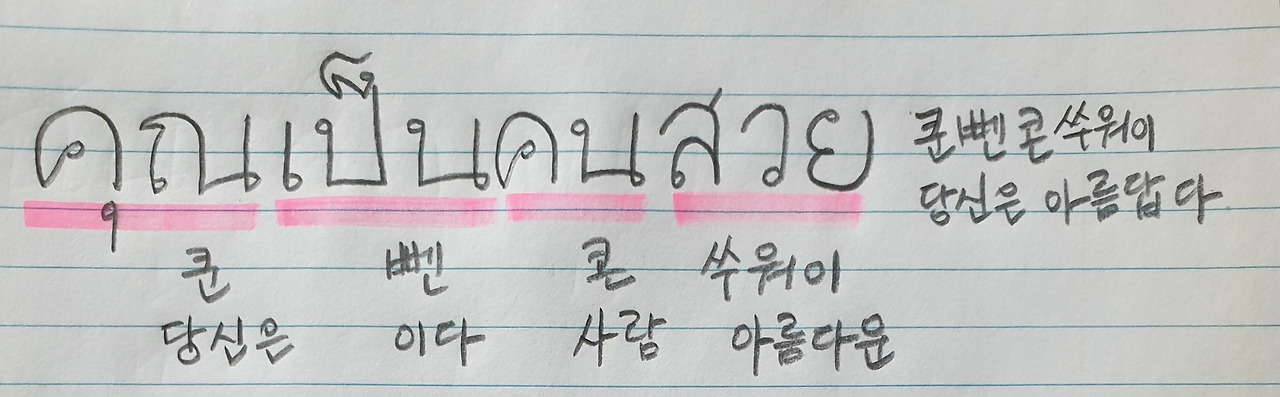 คุณเป็นคนสวย
쿤 뻰 콘 쑤워이
당신은 이다 사람 아름다운
쿤뻰콘쑤워이
당신은 아름답다